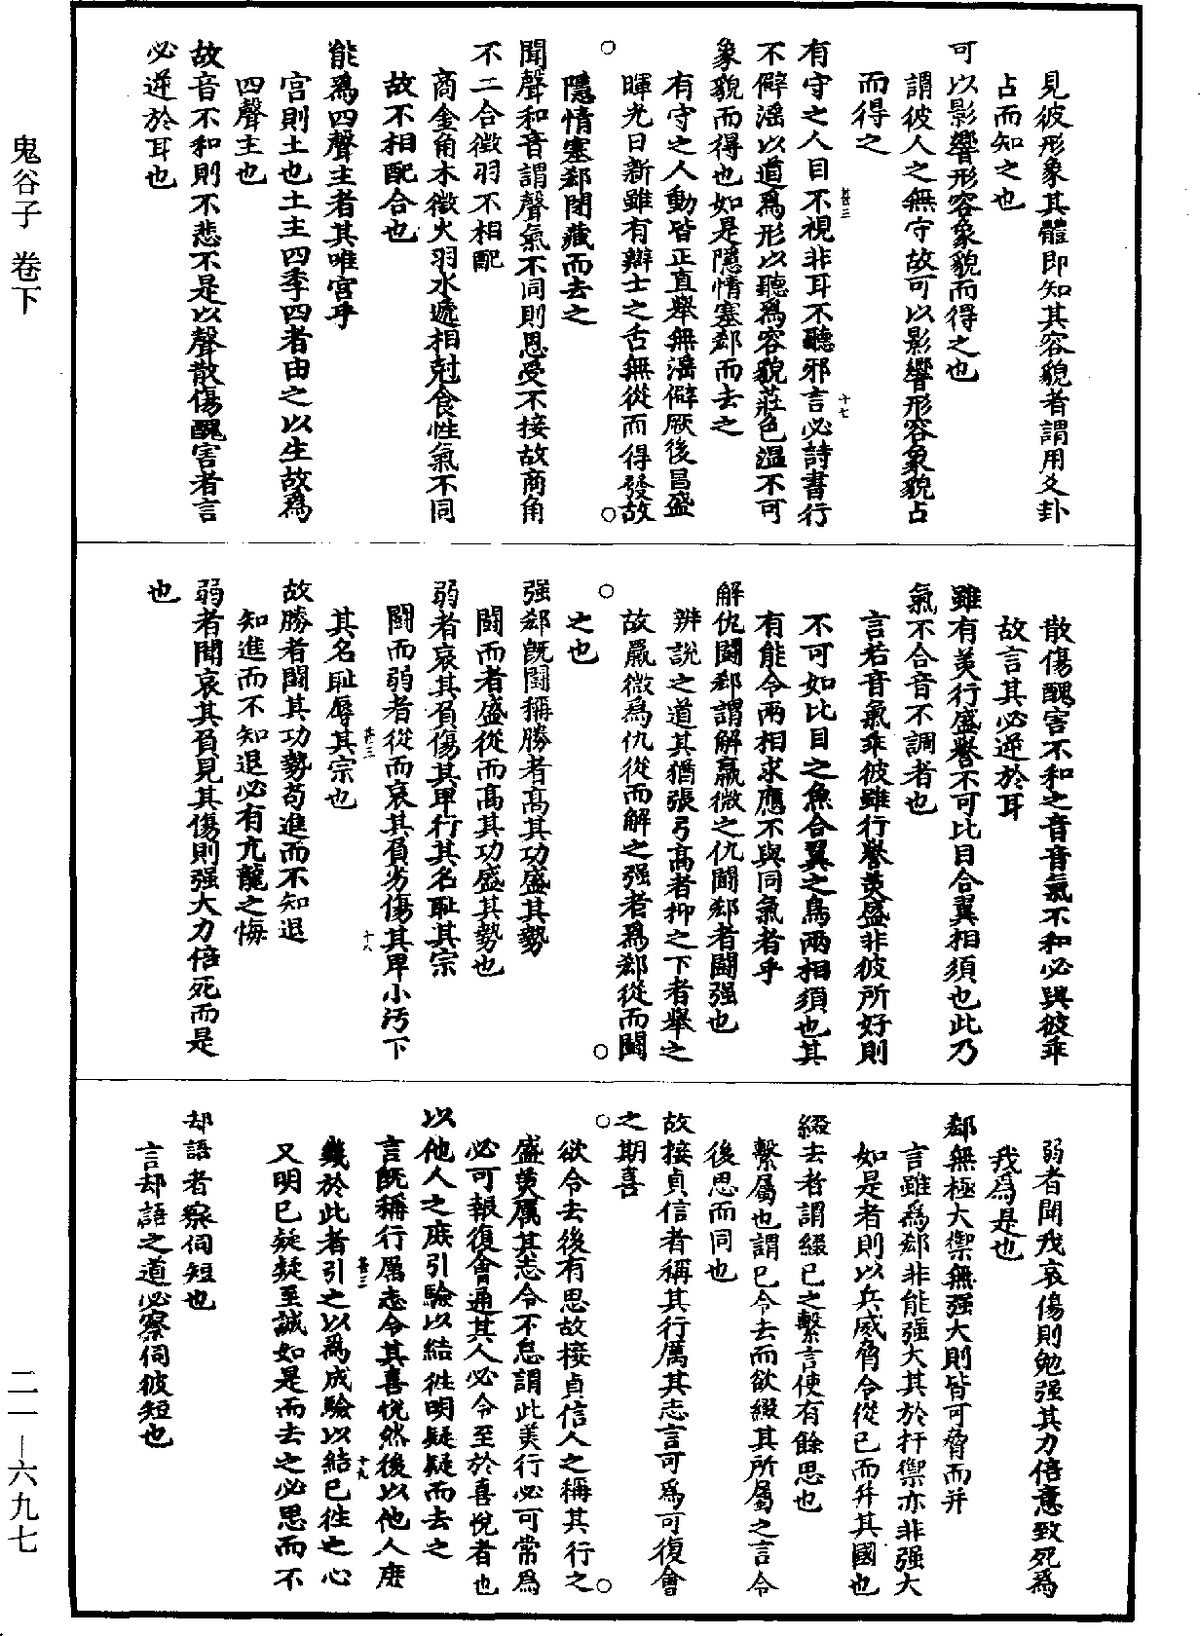 見彼形象其體即知其容貌者謂用爻卦
占而知之也
可以影響形容象貌而得之也
謂彼人之無守故可以影響形容象貌占
而得之
有守之人目不視非耳不聽邪言必詩書行
不僻淫以道爲形以聽爲容貌莊色溫不可
象貌而得也如是隱情塞郄而去之
有守之人動皆正直舉無淫僻厥後昌盛
暉光日新雖有辯士之舌無從而得發故
隱情塞郄閉藏而去之
聞聲和音謂聲氣不同則恩受不接故商角
不二合徵羽不相配
商金角木徵火羽水遞相剋食性氣不同
故不相配合也
能爲四聲主者其唯宮乎
宮則土也土主四季四者由之以生故爲
四聲主也
故音不和則不悲不是以聲散傷醜害者言
必逆於耳也
散傷醜害不和之音音氣不和必與彼乖
故言其必逆於耳
雖有美行盛譽不可比目合翼相須也此乃
氣不合音不調者也
言若音氣乖彼雖行譽美盛非彼所好則
不可如比目之魚合翼之鳥兩相須也其
有能令兩相求應不與同氣者乎
解仇鬭郄謂解羸微之仇鬭郄者鬭强也
辨說之道其猶張弓高者抑之下者舉之
故羸微爲仇從而解之强者爲郄從而鬭
之也
强郄旣鬭稱勝者高其功盛其勢
鬭而者盛從而高其功盛其勢也
弱者哀其負傷其卑行其名耻其宗
鬭而弱者從而哀其負劣傷其卑小污下
其名耻辱其宗也
故勝者聞其功勢苟進而不知退
知進而不知退必有亢龍之悔
弱者聞哀其負見其傷則强大力倍死而是
也
弱者聞我哀傷則勉强其力倍意致死爲
我爲是也
郄無極大禦無强大則皆可脅而并
言雖爲郄非能强大其於扞禦亦非强大
如是者則以兵威脅令從已而并其國也
綴去者謂綴已之繫言使有餘思也
繫屬也謂已令去而欲綴其所屬之言令
後思而同也
故接貞信者稱其行厲其志言可爲可復會
之期喜
欲令去後有思故接貞信人之稱其行之
盛美厲其志令不怠謂此美行必可常爲
必可報復會通其人必令至於喜悅者也
以他人之庶引驗以結往明疑疑而去之
言旣稱行厲志令其喜悅然後以他人庶
幾於此者引之以爲成驗以結已往之心
又明已疑疑至誠如是而去之必思而不
却語者察伺短也
言却語之道必察伺彼短也
鬼谷子 卷下
二一—六九七
甚三
十七
甚三
十八
甚三
十九